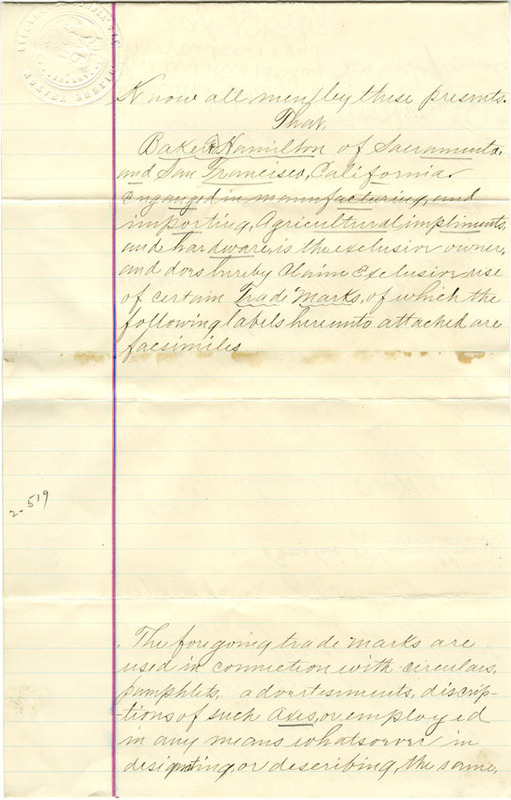 Know all men by these presents.
That,
Baker & Hamilton of Sacramento,
and San Francisco, California.
Enganged in manufacturing, and
importing, Agricultural impliments,
and hardware, is the exclusive owner,
and does hereby Claim Exclusive use
of certain Trade Marks, of which the
following labels hereunto attached are
facsimiles
2-519
The foregoing trade marks are
used in connection with circulars,
pamphlets, advertisments, discrip-
tions of such Axes, or employed
in any means whatsoever in
designating, or describing, the same,